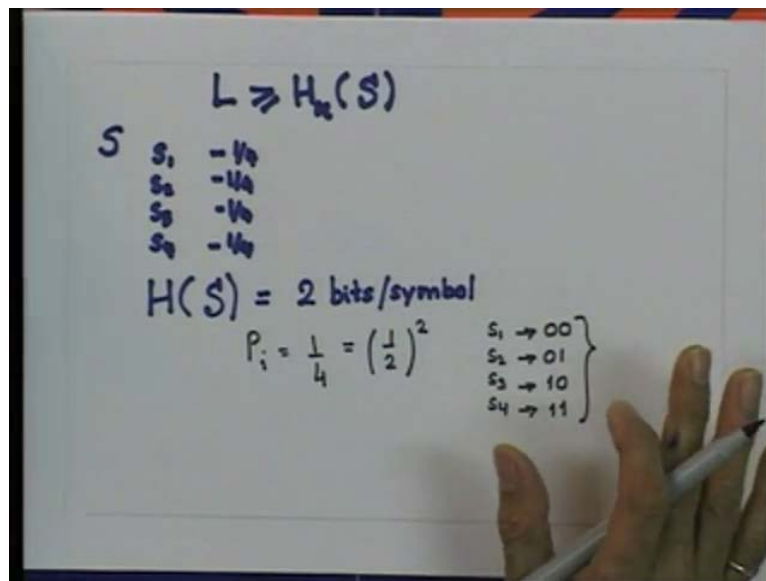 L ⩾ Hᵣ(S)
S S₁ - 1/4
S₂ - 1/4
S₃ - 1/4
S₄ - 1/4
H(S) = 2 bits/symbol
Pᵢ = 1/4 = (1/2)²
S₁ → 00
S₂ → 01
S₃ → 10
S₄ → 11